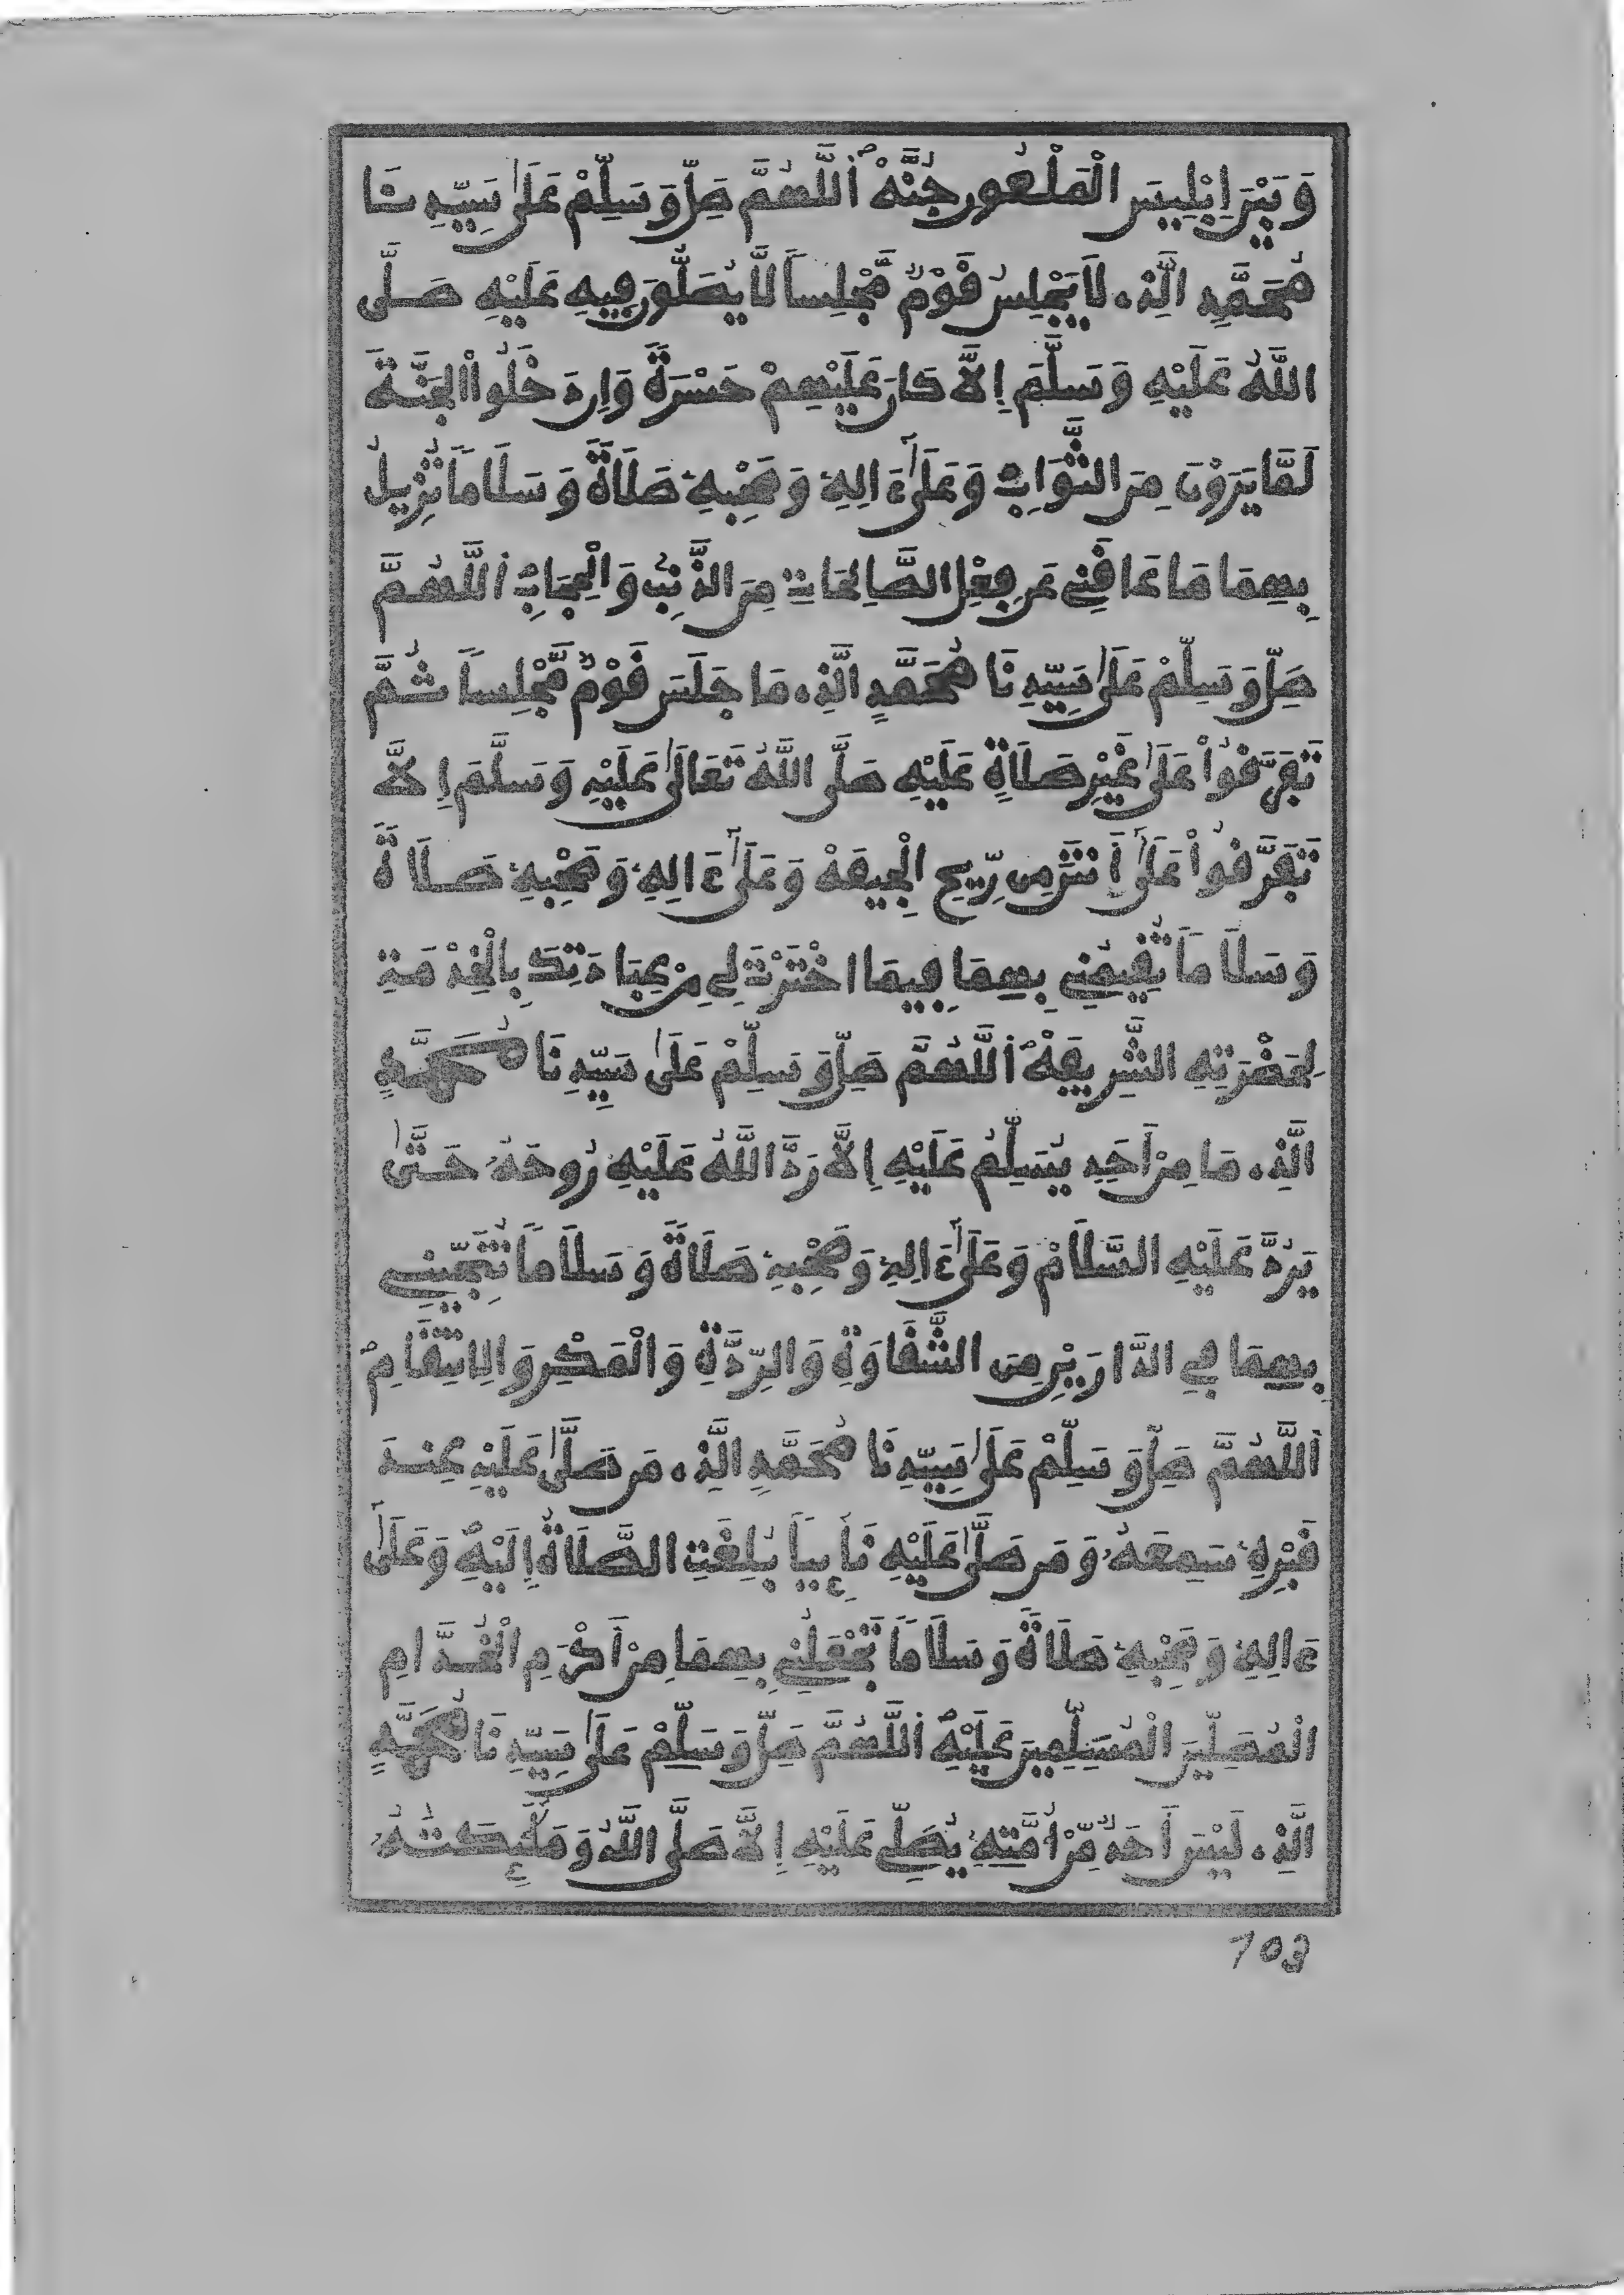 وَبَيْنَ إِبْلِيسَ الْمَلْعُونِ جُنَّهْ اَللَّهُمَّ صَلِّ وَسَلِّمْ عَلَى سَيِّدِنَا
مُحَمَّدٍ الَّذِي لَا يَجْلِسُ قَوْمٌ مَّجْلِساً لَّا يُصَلُّونَ فِيهِ عَلَيْهِ صَلَّى
اللَّهُ عَلَيْهِ وَسَلَّمَ إِلَّا كَانَ عَلَيْهِمْ حَسْرَةً وَإِن دَخَلُواْ الْجَنَّةَ
لَمَّا يَرَوْنَ مِنَ الثَّوَابِ وَعَلَىٰ ءَالِهِ وَصَحْبِهِ صَلَاةً وَسَلَاماً تُزِيلُ
بِهِمَا مَا عَاقَنِي عَن فِعْلِ الصَّالِحَاتِ مِنَ الذَّنبِ وَالْحِجَابِ اَللَّهُمَّ
صَلِّ وَسَلِّمْ عَلَى سَيِّدِنَا مُحَمَّدٍ الَّذِي مَا جَلَسَ قَوْمٌ مَّجْلِساً ثُمَّ
تَفَرَّقُواْ عَلَى غَيْرِ صَلَاةٍ عَلَيْهِ صَلَّى اللَّهُ تَعَالَى عَلَيْهِ وَسَلَّمَ إِلَّا
تَفَرَّقُواْ عَلَىٰ أَنتَنَ مِن رِّيحِ الْجِيفَهْ وَعَلَىٰ ءَالِهِ وَصَحْبِهِ صَلَاةً
وَسَلَاماً تُقِيمُنِي بِهِمَا فِيمَا اخْتَرْتَ لِي مِنْ عِبَادَتِكَ بِالْخِدْمَةِ
لِحَضْرَتِهِ الشَّرِيفَهْ اَللَّهُمَّ صَلِّ وَسَلِّمْ عَلَى سَيِّدِنَا مُحَمَّدٍ
الَّذِي مَا مِنْ أَحَدٍ يُسَلِّمُ عَلَيْهِ إِلَّا رَدَّ اللَّهُ عَلَيْهِ رُوحَهُ حَتَّى
يَرُدَّ عَلَيْهِ السَّلَامْ وَعَلَىٰ ءَالِهِ وَصَحْبِهِ صَلَاةً وَسَلَاماً تُنَجِّينِي
بِهِمَا فِي الدَّارَيْنِ مِنَ الشَّقَاوَةِ وَالرِّدَّةِ وَالْمَكْرِ وَالِانتِقَامِ
اَللَّهُمَّ صَلِّ وَسَلِّمْ عَلَى سَيِّدِنَا مُحَمَّدٍ الَّذِي مَن صَلَّى عَلَيْهِ عِندَ
قَبْرِهِ سَمِعَهُ وَمَن صَلَّى عَلَيْهِ نَائِياً بُلِغَتِ الصَّلَاةُ إِلَيْهِ وَعَلَىٰ
ءَالِهِ وَصَحْبِهِ صَلَاةً وَسَلَاماً تَجْعَلُنِي بِهِمَا مِنْ أَكْرَمِ الْخُدَّامِ
الْمُصَلِّينَ الْمُسَلِّمِينَ عَلَيْهِ اَللَّهُمَّ صَلِّ وَسَلِّمْ عَلَى سَيِّدِنَا مُحَمَّدٍ
الَّذِي لَيْسَ أَحَدٌ مِّنْ أُمَّتِهِ يُصَلِّي عَلَيْهِ إِلَّا صَلَّى اللَّهُ وَمَلَٰئِكَتُهُ
703